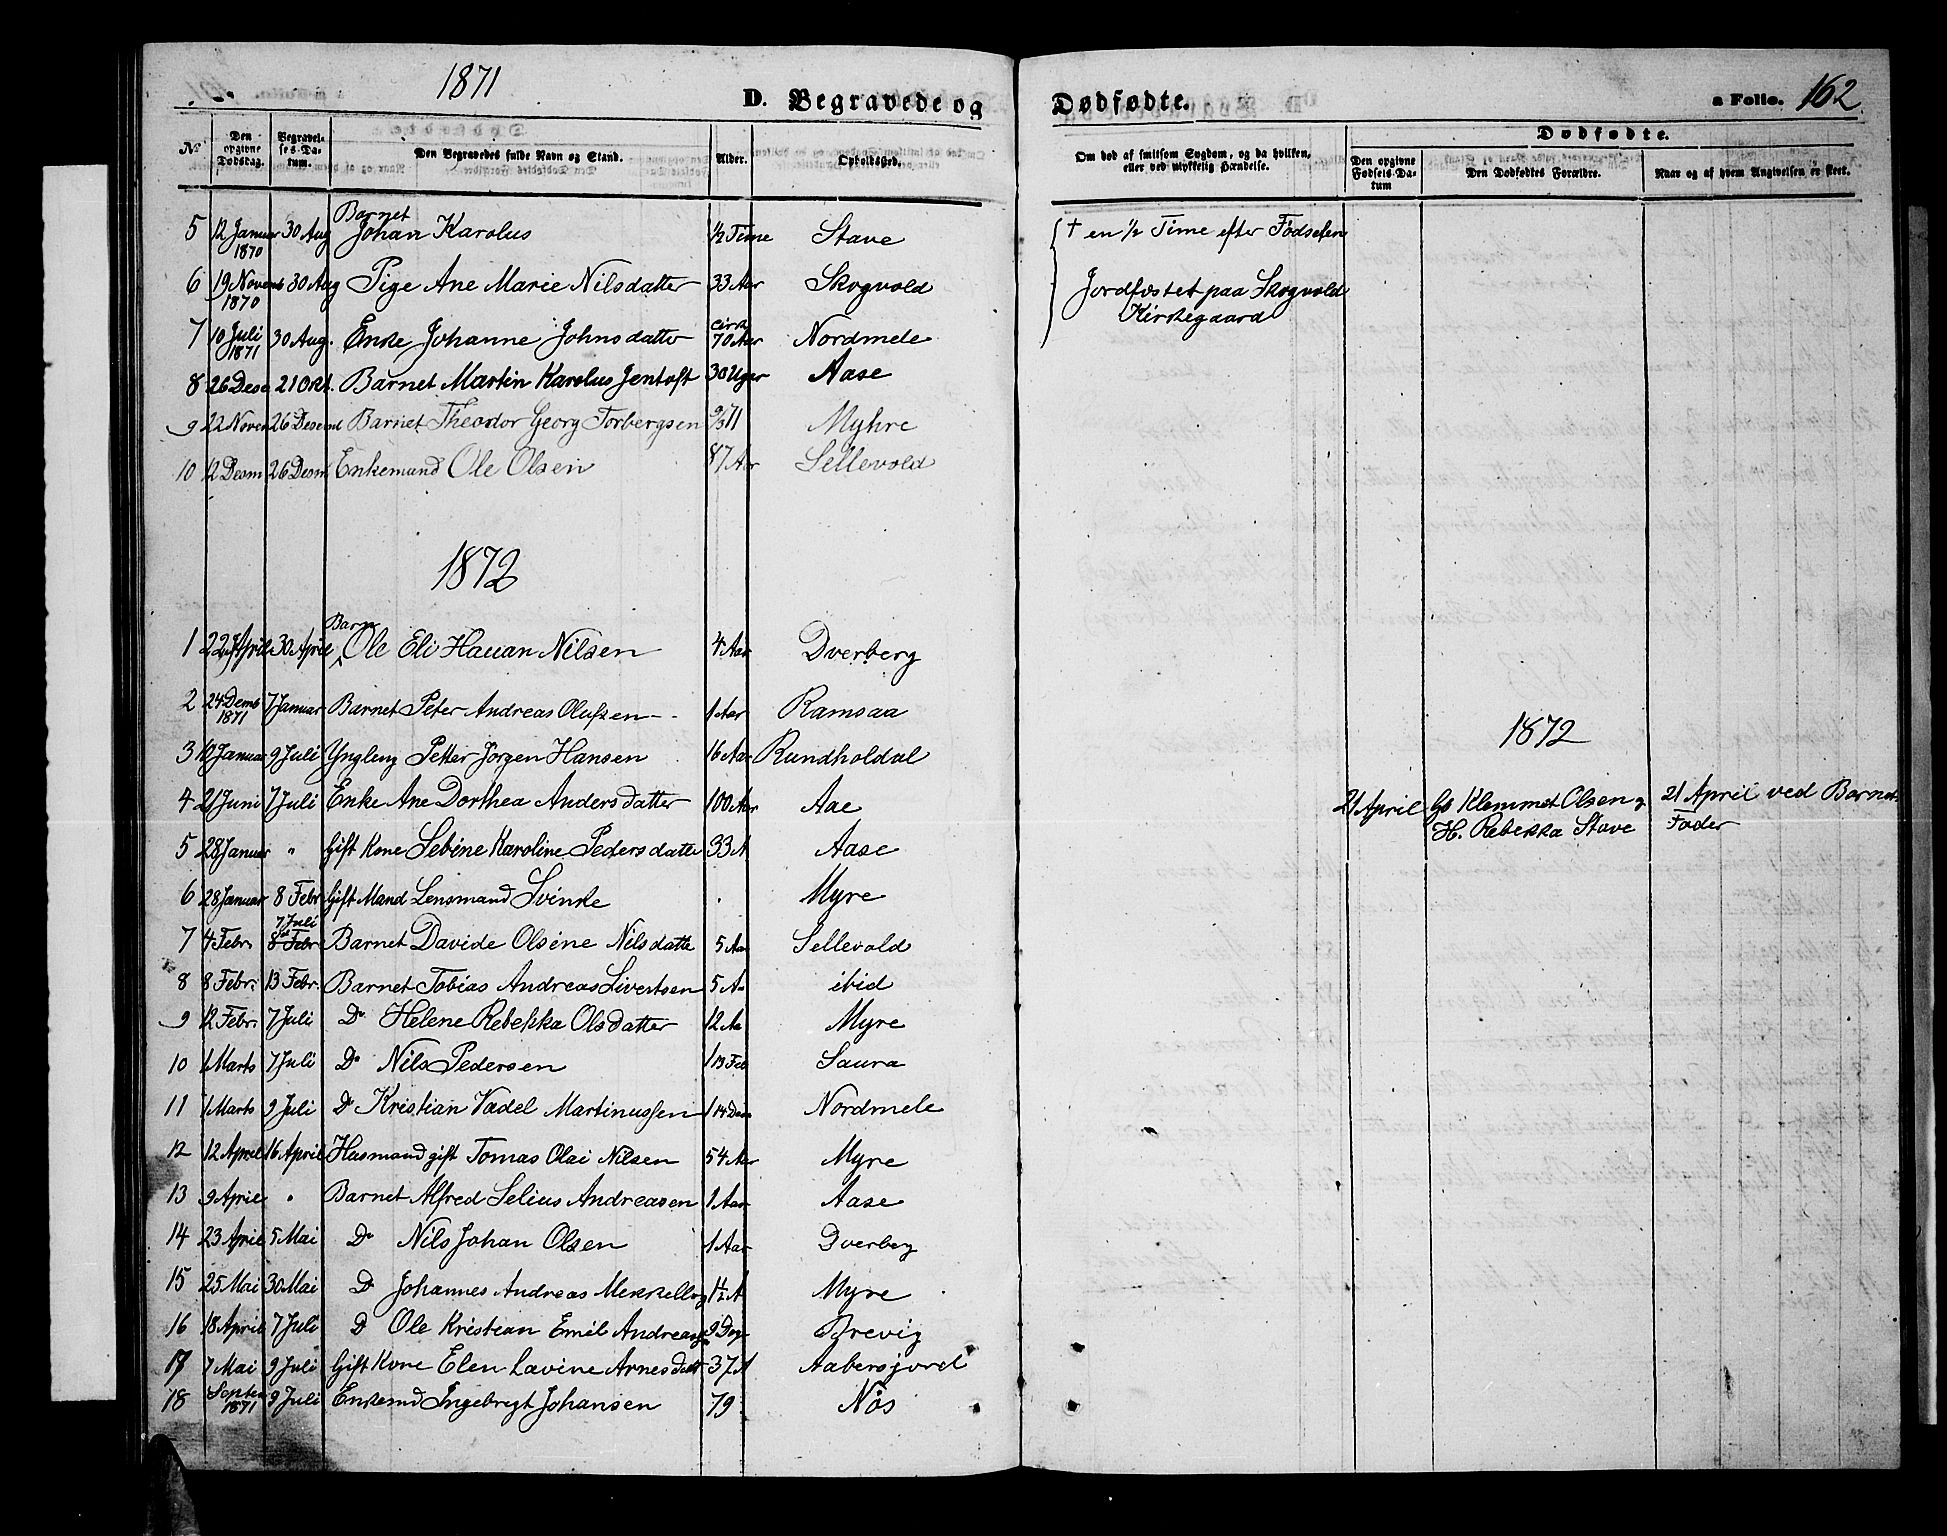 1871 D. Begravede og Dødfødte. a Folio. 162
Dødfødte.
No Den opgivne Dødsdag. Begravelses-Datum. Den Begravedes fulde Navn og Stand. Alder. Opholdssted. Om død af smitsom Sygdom, og da hvilken, eller ved ulykkelig Hændelse. Den opgivne Fødsels-Datum Den Dødfødtes Forældre. Naar og af hvem Angivelsen er skeet.
5 12 Januar 1870 30 Aug Barnet Johan Karolus ½ Time Stave † en ½ Time efter Fødselen
6 19 Novemb 1870 30 Aug Pige Ane Marie Nilsdatter 33 Aar Skogvold Jordfæstet paa Skogvold Kirkegaard
7 10 Juli 1871 30 Aug. Enke Johanne Johnsdatter cirka 70 Aar Nordmele
8 26 Dese 21 Okt. Barnet Martin Karolus Jentoft 30 Uger Aase
9 22 Novem 26 Desemb Barnet Theodor Georg Torbergsen 9/3 71 Myhre
10 12 Desm 26 Desm Enkemand Ole Olsen 87 Aar Sellevold
1872
1 22 April 30 April Barn Ole Eli Hauan Nilsen 4 Aar Dverberg
2 24 Demb 1871 7 Januar Barnet Peter Andreas Olufsen 1 Aar Ramsaa
1872
3 10 Januar 9 Juli Yngleng Petter Jørgen Hansen 16 Aar Rundholdal
4 21 Juni 7 Juli Enke Ane Dorthea Andersdatter 100 Aar Aae 21 April Gb Klemmet Olsen og H. Rebekka Stave 21 April ved Barnets Fader
5 28 Januar " Gift Kone Sebine Karoline Pedersdatte 33 A Aase
6 28 Januar 8 Febr Gift Mand Lensmand Svinke Myre
7 4 Febr. 7 Juli 8 Febr Barnet Davide Olsine Nilsdatte 5 Aar Sellevold
8 8 Febr. 13 Febr. Barnet Tobias Andreas Sivertsen 5 Aa ibid
9 12 Febr. 7 Juli Do Helene Rebekka Olsdatter 12 Aa Myre
10 1 Marts 7 Juli Do Nils Pedersen 1 13 Feb Saura
11 1 Marts 9 Juli Do Kristian Vadel Martinussen 1 14 Des Nordmele
12 12 April 16 April Husmand gift Tomas Olai Nilsen 54 Aar Myre
13 9 April " Barnet Alfred Selius Andreasen 1 Aar Aase
14 23 April 5 Mai Do Nils Johan Olsen 1 Aar Dverberg
15 25 Mai 30 Mai Do Johannes Andreas Mekkelborg 1½ A Myre
16 18 April 7 Juli D Ole Kristian Emil Andreasen 9 Dage Brevig
17 7 Mai 9 Juli Gift Kone Elen Lavine Arnesdatt 37 A Aabersjord
18 Septem 1871 9 Juli Enkemd Ingebregt Johansen 79 Nøs